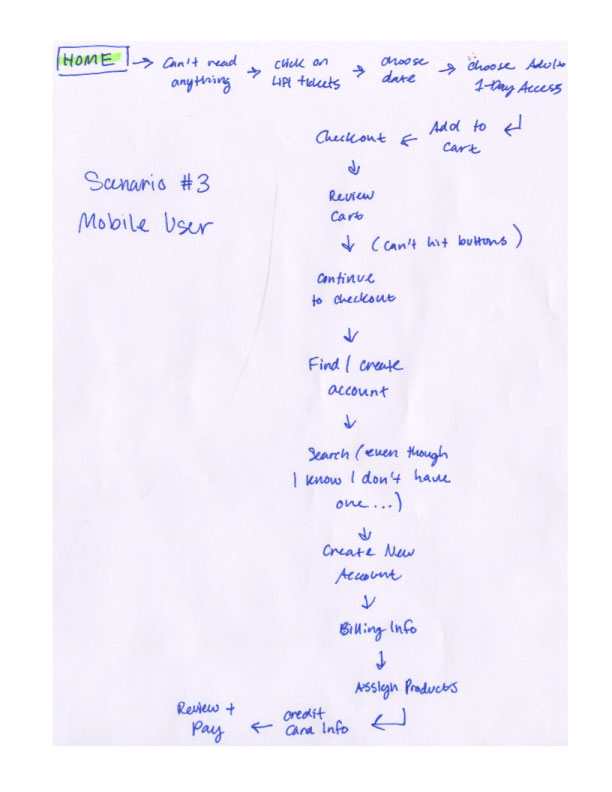 HOME → Can't read → click on → choose → choose Adult
anything lift tickets date 1-Day Access
Checkout ← Add to
cart
Scenario #3
Mobile User
Review
Cart
(can't hit buttons)
continue
to checkout
Find / create
account
Search (even though
I know I don't have
one...)
Create New
Account
Billing Info
Assign Products
Review + credit
Pay ← Card Info